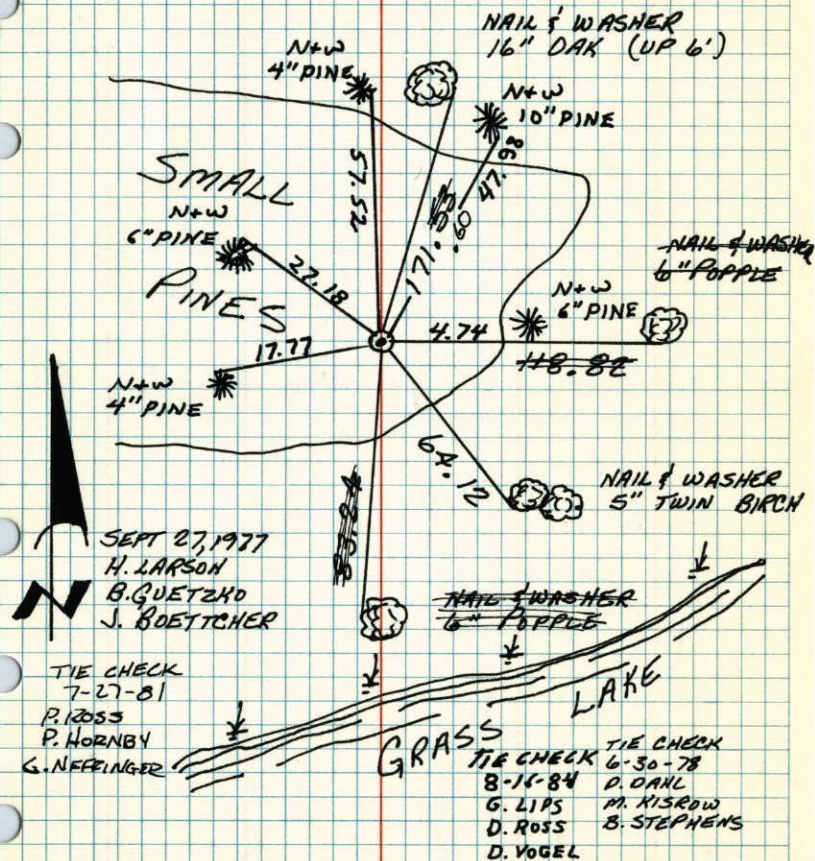 NAIL & WASHER
16" OAK (UP 6')
N+W
4" PINE
N+W
10" PINE
57.52
171.53
.60
47.86
SMALL
PINES
N+W
6" PINE
22.18
NAIL & WASHER
6" POPPLE
N+W
6" PINE
4.74
118.82
17.77
N+W
4" PINE
64.12
NAIL & WASHER
5" TWIN BIRCH
N
SEPT 27, 1977
H. LARSON
B. GUETZKO
J. BOETTCHER
NAIL & WASHER
6" POPPLE
TIE CHECK
7-27-81
P. ROSS
P. HORNBY
G. NEFFINGER
GRASS LAKE
TIE CHECK
8-16-84
G. LIPS
D. ROSS
D. VOGEL
TIE CHECK
6-30-78
D. DAHL
M. KISROW
B. STEPHENS